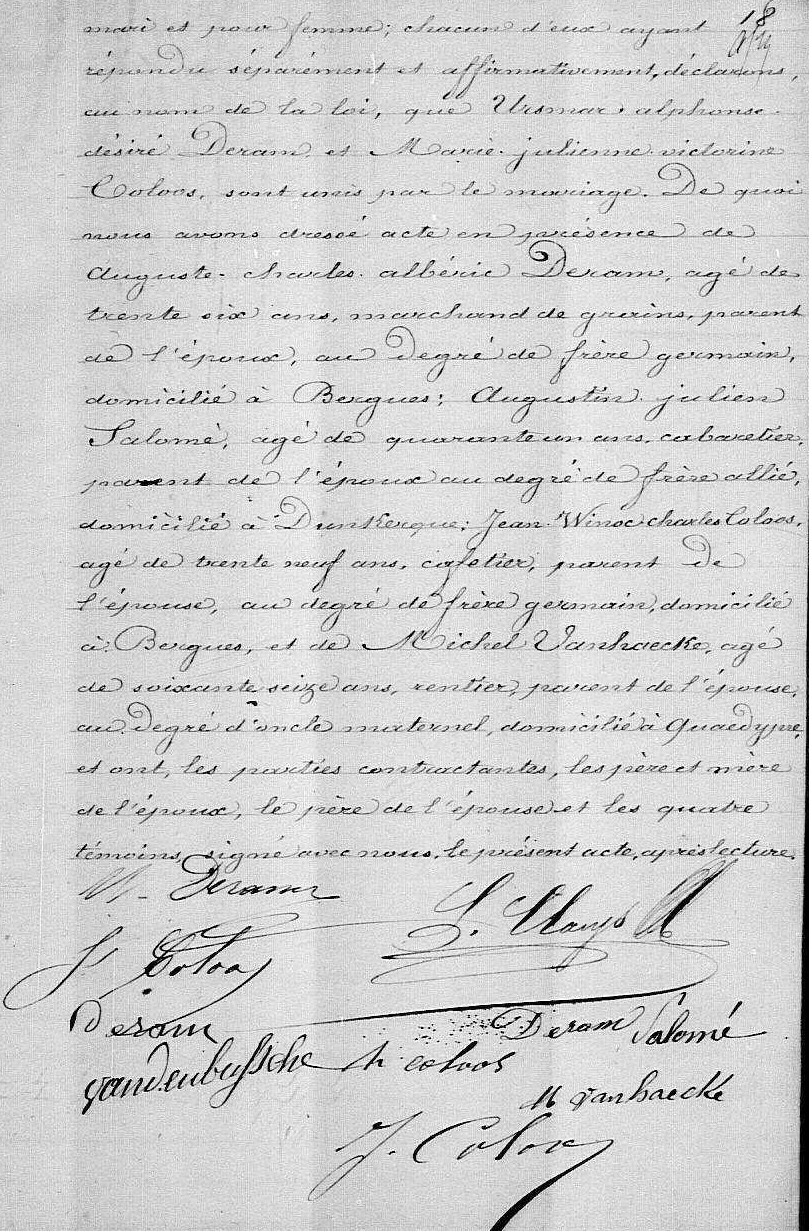 18
mari et pour femme; chacun d'eux ayant
répondu séparément et affirmativement, déclarons,
au nom de la loi, que Ursmar, alphonse.
désiré Deram et Marie. julienne. victorine
Coloos, sont unis par le mariage. De quoi
nous avons dressé acte en présence de
Auguste. charles. albéric Deram, agé de
trente six ans, marchand de grains, parent
de l'époux, au degré de frère germain,
domicilié à Bergues; Augustin. julien
Salomé, agé de quarante un ans, cabaretier,
parent de l'époux au degré de frère allié,
domicilié à Dunkerque; Jean. Winoc charles Coloos,
agé de trente neuf ans, cafetier, parent de
l'épouse, au degré de frère germain, domicilié
à Bergues, et de Michel Vanhaecke, agé
de soixante seize ans, rentier, parent de l'épouse,
au degré d'oncle maternel, domicilié à Quaedypre,
et ont, les parties contractantes, les père et mère
de l'époux, le père de l'épouse et les quatre
témoins, signé avec nous, le présent acte, après lecture.
Deram
Coloos
Deram Deram Salomé
vandenbussche coloos
M vanhaecke
J. Coloos